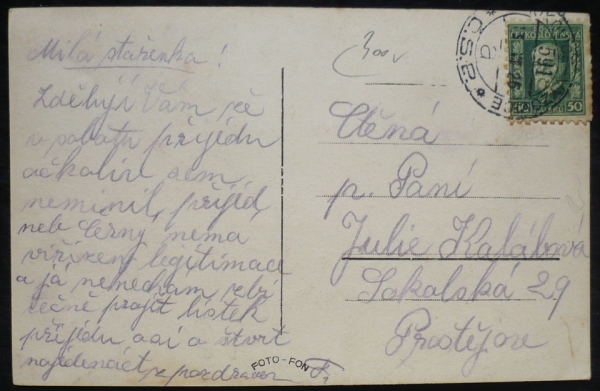 Milá stařenka!
Zděluji Vám že
v sobotu přijedu
ačkoliv sem
neminil, přijed,
neb Černý nema
viřízený legitimace
a já nemoham
tečně projit lístek
přijedu asi o štvrt
najedenáct, s pozdravem
FOTO-FON
Ctěná
p. Paní
Julie Kalábová
Sokolská 29
Prostějov
ČESKOSLOVENSKÁ
50
50